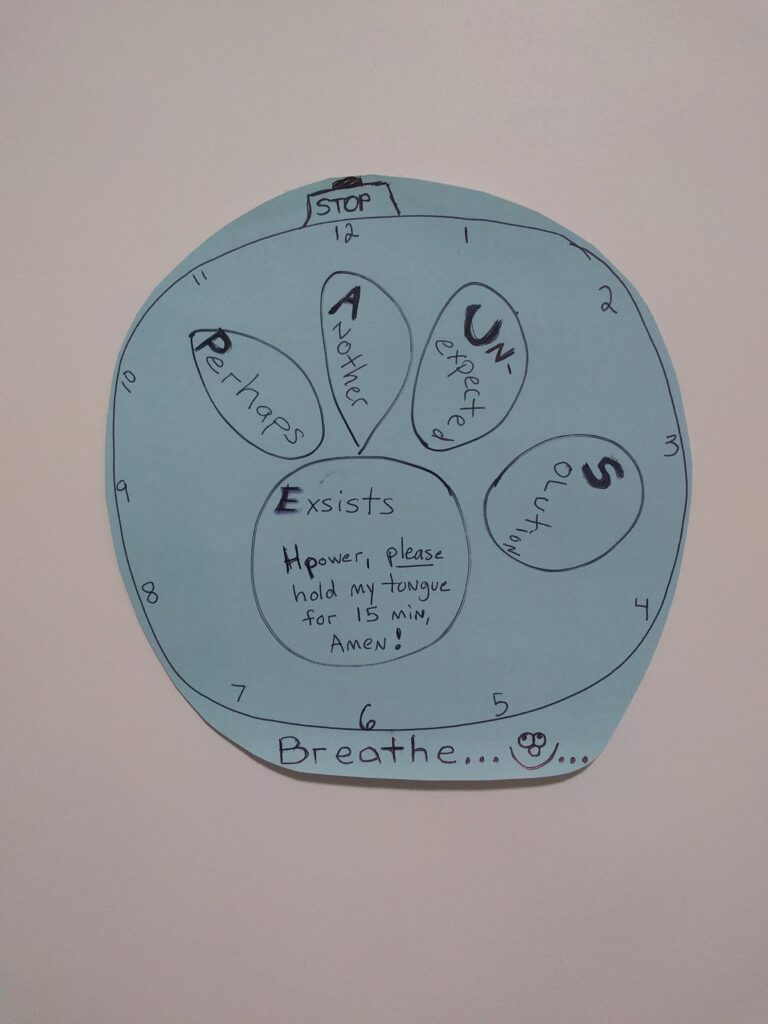 STOP
12
1
2
3
4
5
6
7
8
9
10
11
Perhaps
Another
UN-
expected
Solution
Exsists
Hpower, please
hold my tongue
for 15 min,
Amen!
Breathe... ...